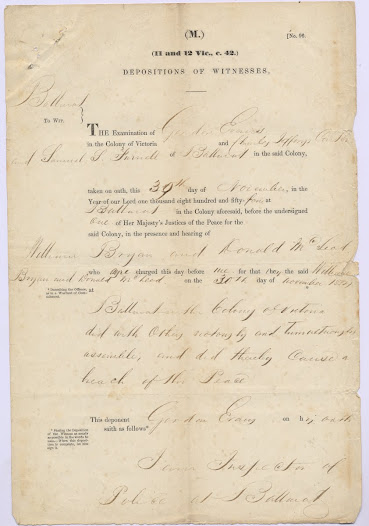 (M.)
[No. 96.
(11 and 12 Vic., c. 42.)
DEPOSITIONS OF WITNESSES.
Ballarat
To Wit.
THE Examination of Gordon Evans
in the Colony of Victoria and Charles Jeffreys Carter
and Samuel S Furnell of Ballarat in the said Colony,
taken on oath, this 30th day of November, in the
Year of our Lord one thousand eight hundred and fifty-four at
Ballarat in the Colony aforesaid, before the undersigned
one of Her Majesty's Justices of the Peace for the
said Colony, in the presence and hearing of
William Bryan and Donald McLeod
who are charged this day before me for that they, the said William
Bryan and Donald McLeod on the 30th day of November 1854
at
Ballarat in the Colony of Victoria
did with others riotously and tumultuously
assemble, and did thereby cause a
breach of the Peace
This deponent Gordon Evans on his oath
saith as follows
I am Inspector of
Police at Ballarat